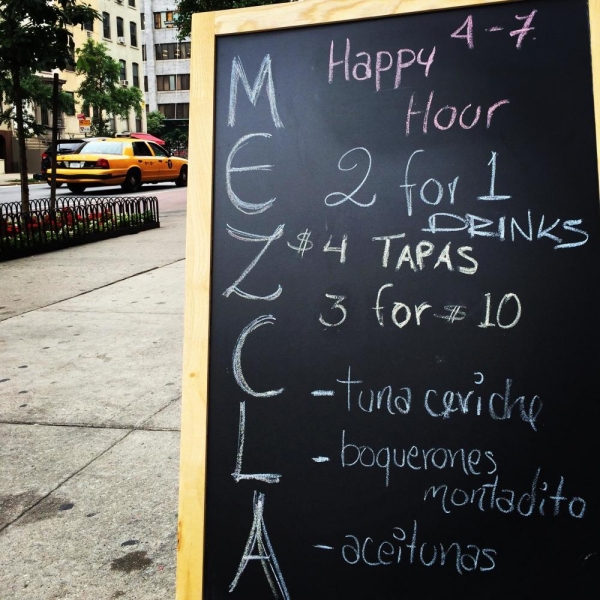 MEZCLA
Happy 4-7
Hour
2 for 1
DRINKS
$4 TAPAS
3 for $10
- tuna ceviche
- boquerones
montadito
- aceitunas